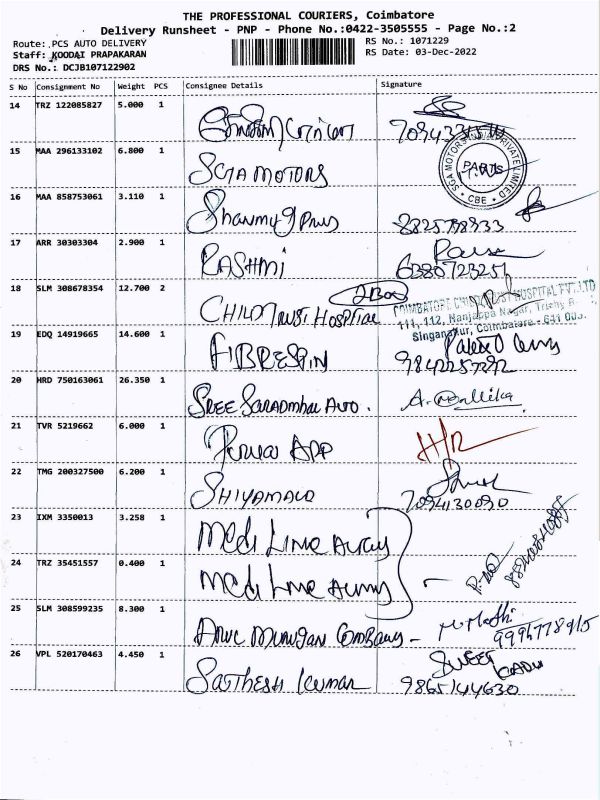 THE PROFESSIONAL COURIERS, Coimbatore
Delivery Runsheet - PNP - Phone No.:0422-3505555 - Page No.:2
Route: PCS AUTO DELIVERY
RS No.: 1071229
Staff: KOODAI PRAPAKARAN
RS Date: 03-Dec-2022
DRS No.: DCJB107122902
S No Consignment No Weight PCS Consignee Details Signature
14 TRZ 122085827 5.000 1
15 MAA 296133102 6.800 1 SGA MOTORS
SGA MOTORS PRIVATE LIMITED PARTS CBE
16 MAA 858753061 3.110 1 Shanmuga
17 ARR 30303304 2.900 1 RASHMI 6380723251
18 SLM 308678354 12.700 2 CHILD TRUST HOSPITAL 2 BOX
COIMBATORE CHILD TRUST HOSPITAL PVT. LTD
111, 112, Nanjappa Nagar, Trichy R
Singanallur, Coimbatore - 641 005.
19 EDQ 14919665 14.600 1 FIBRESPIN
20 HRD 750163061 26.350 1 SREE SARADMBAL AUTO. A. Mallika
21 TVR 5219662 6.000 1 APP
22 TMG 200327500 6.200 1 SHIYAMALA 7094130090
23 IXM 3350013 3.258 1 Medi Line
24 TRZ 35451557 0.400 1 Medi Line
25 SLM 308599235 8.300 1 Arul Murugan Company -
26 VPL 520170463 4.450 1 Sasthesh Kumar SWEET 9865144630